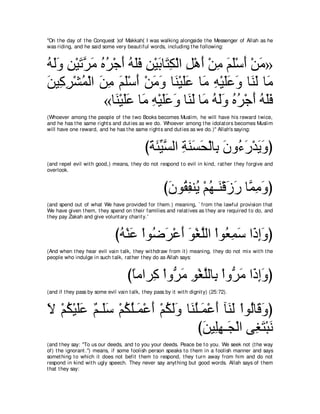 "On the day of the Conquest )of Makkah( I was walking alongside the Messenger of Allah as he
was riding, and he said some very beautiful words, including the following:
«مَنْ أَسْلَمَ مِنْ أَهْلِ الْكِتَابَيْنِ فَلَهُ أَجْرُهُ مَرَّتَيْنِ وَلَهُ
مَا لَنَا وَعَلَيْهِ مَا عَلَيْنَا وَمَنْ أَسْلَمَ مِنَ الْمُشْرِكِينَ
فَلَهُ أَجْرُهُ وَلَهُ مَا لَنَا وَعَلَيْهِ مَا عَلَيْنَا»
(Whoever among the people of the two Books becomes Muslim, he will have his reward twice,
and he has the same rights and duties as we do. Whoever among the idolators becomes Muslim
will have one reward, and he has the same rights and duties as we do.)" Allah's saying:
(وَيَدْرَءُونَ بِالْحَسَنَةِ السَّيِّئَةَ)
(and repel evil with good,) means, they do not respond to evil in kind, rather they forgive and
overlook.
(وَمِمَّا رَزَقْنَـهُمْ يُنفِقُونَ)
(and spend out of what We have provided for them.) meaning, `from the lawful provision that
We have given them, they spend on their families and relatives as they are required to do, and
they pay Zakah and give voluntary charity.'
(وَإِذَا سَمِعُوا اللَّغْوَ أَعْرَضُوا عَنْهُ)
(And when they hear evil vain talk, they withdraw from it) meaning, they do not mix with the
people who indulge in such talk, rather they do as Allah says:
(وَإِذَا مَرُّوا بِاللَّغْوِ مَرُّوا كِراماً)
(and if they pass by some evil vain talk, they pass by it with dignity) (25:72).
(وَقَالُوا لَنَآ أَعْمَـلُنَا وَلَكُمْ أَعْمَـلُكُمْ سَلَـمٌ عَلَيْكُمْ لاَ
نَبْتَغِى الْجَـهِلِينَ)
(and they say: "To us our deeds, and to you your deeds. Peace be to you. We seek not (the way
of) the ignorant.") means, if some foolish person speaks to them in a foolish manner and says
something to which it does not befit them to respond, they turn away from him and do not
respond in kind with ugly speech. They never say anything but good words. Allah says of them
that they say: